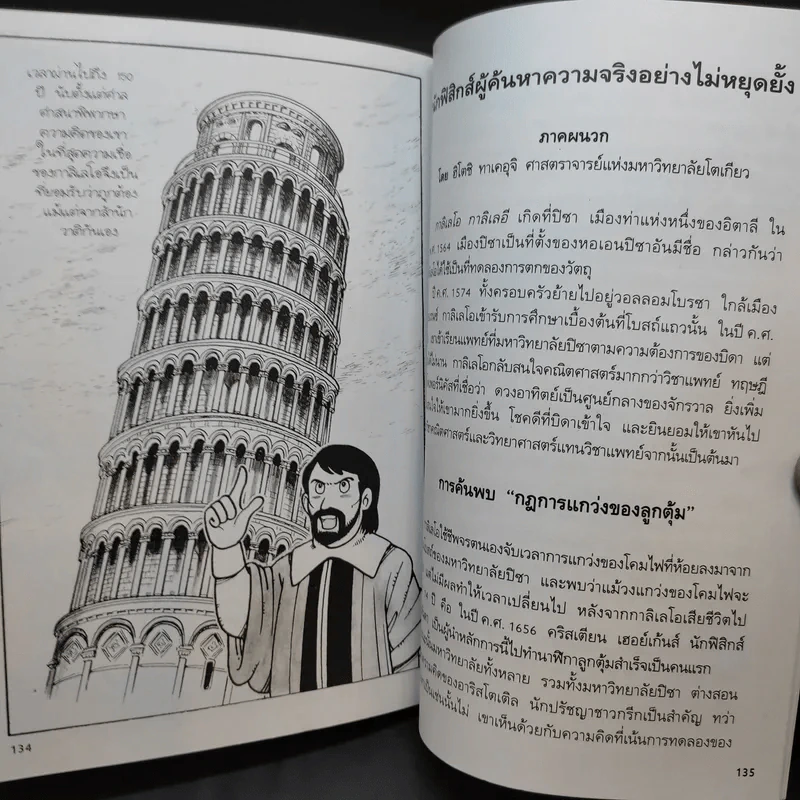 เวลาผ่านไปถึง 350
ปี นับตั้งแต่ศาล
ศาสนาพิพากษา
ความคิดของเขา
ในที่สุดความเชื่อ
ของกาลิเลโอจึงเป็น
ที่ยอมรับว่าถูกต้อง
แม้แต่จากสำนัก
วาติกันเอง
134
นักฟิสิกส์ผู้ค้นหาความจริงอย่างไม่หยุดยั้ง
ภาคผนวก
โดย ฮิโตชิ ทาเคอุจิ ศาสตราจารย์แห่งมหาวิทยาลัยโตเกียว
กาลิเลโอ กาลิเลอี เกิดที่ปิซา เมืองท่าแห่งหนึ่งของอิตาลี ใน
ค.ศ. 1564 เมืองปิซาเป็นที่ตั้งของหอเอนปิซาอันมีชื่อ กล่าวกันว่า
ได้ใช้เป็นที่ทดลองการตกของวัตถุ
ปี ค.ศ. 1574 ทั้งครอบครัวย้ายไปอยู่วอลลอมโบรซา ใกล้เมือง
กาลิเลโอเข้ารับการศึกษาเบื้องต้นที่โบสถ์แถวนั้น ในปี ค.ศ.
เข้าเรียนแพทย์ที่มหาวิทยาลัยปิซาตามความต้องการของบิดา แต่
ไม่นาน กาลิเลโอกลับสนใจคณิตศาสตร์มากกว่าวิชาแพทย์ ทฤษฎี
ที่เชื่อว่า ดวงอาทิตย์เป็นศูนย์กลางของจักรวาล ยิ่งเพิ่ม
ให้เขามากยิ่งขึ้น โชคดีที่บิดาเข้าใจ และยินยอมให้เขาหันไป
คณิตศาสตร์และวิทยาศาสตร์แทนวิชาแพทย์จากนั้นเป็นต้นมา
การค้นพบ “กฎการแกว่งของลูกตุ้ม”
กาลิเลโอใช้ชีพจรตนเองจับเวลาการแกว่งของโคมไฟที่ห้อยลงมาจาก
ของมหาวิทยาลัยปิซา และพบว่าแม้วงแกว่งของโคมไฟจะ
ไม่มีผลทำให้เวลาเปลี่ยนไป หลังจากกาลิเลโอเสียชีวิตไป
ปี คือ ในปี ค.ศ. 1656 คริสเตียน เฮอย์เก้นส์ นักฟิสิกส์
เป็นผู้นำหลักการนี้ไปทำนาฬิกาลูกตุ้มสำเร็จเป็นคนแรก
มหาวิทยาลัยทั้งหลาย รวมทั้งมหาวิทยาลัยปิซา ต่างสอน
ความคิดของอาริสโตเติล นักปรัชญาชาวกรีกเป็นสำคัญ ทว่า
เป็นเช่นนั้นไม่ เขาเห็นด้วยกับความคิดที่เน้นการทดลองของ
135